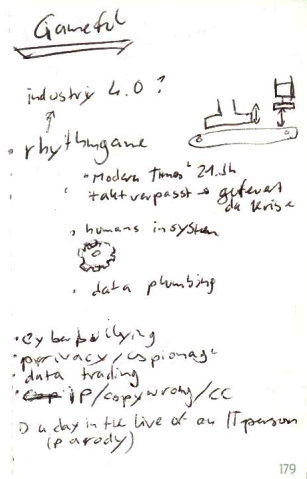 Gameful
industry 4.0 ?
• rhythmgame
"Modern Times" 21. Jh
takt verpasst → gefeuert
da Krise
• humans in system
• data plumbing
• cyberbullying
• privacy/espionage
• data trading
• IP/copywrong/CC
D a day in the live of an IT person
(parody)
179